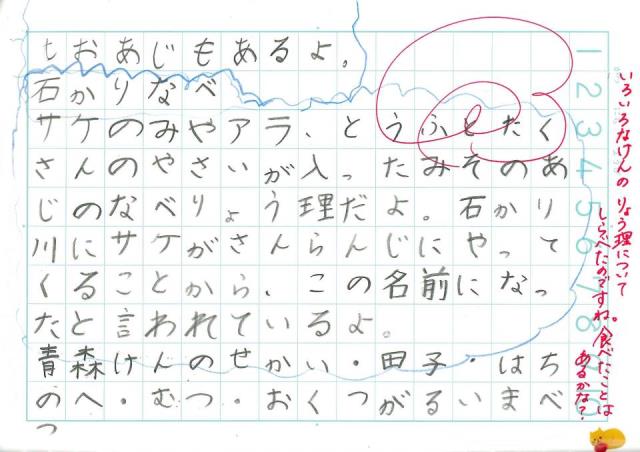 しおあじもあるよ。
石かりなべ
サケのみやアラ、とうふとたく
さんのやさいが入ったみそのあ
じのなべりょう理だよ。石かり
川にサケがさんらんじにやって
くることから、この名前になっ
たと言われているよ。
青森けんのせかい・田子・はち
のへ・むつ・おくつがるいまべ
つ
1 2 3 4 5 6 7 8 9 10
いろいろなけんのりょう理について
しらべたのですね。食べたことは
あるかな?